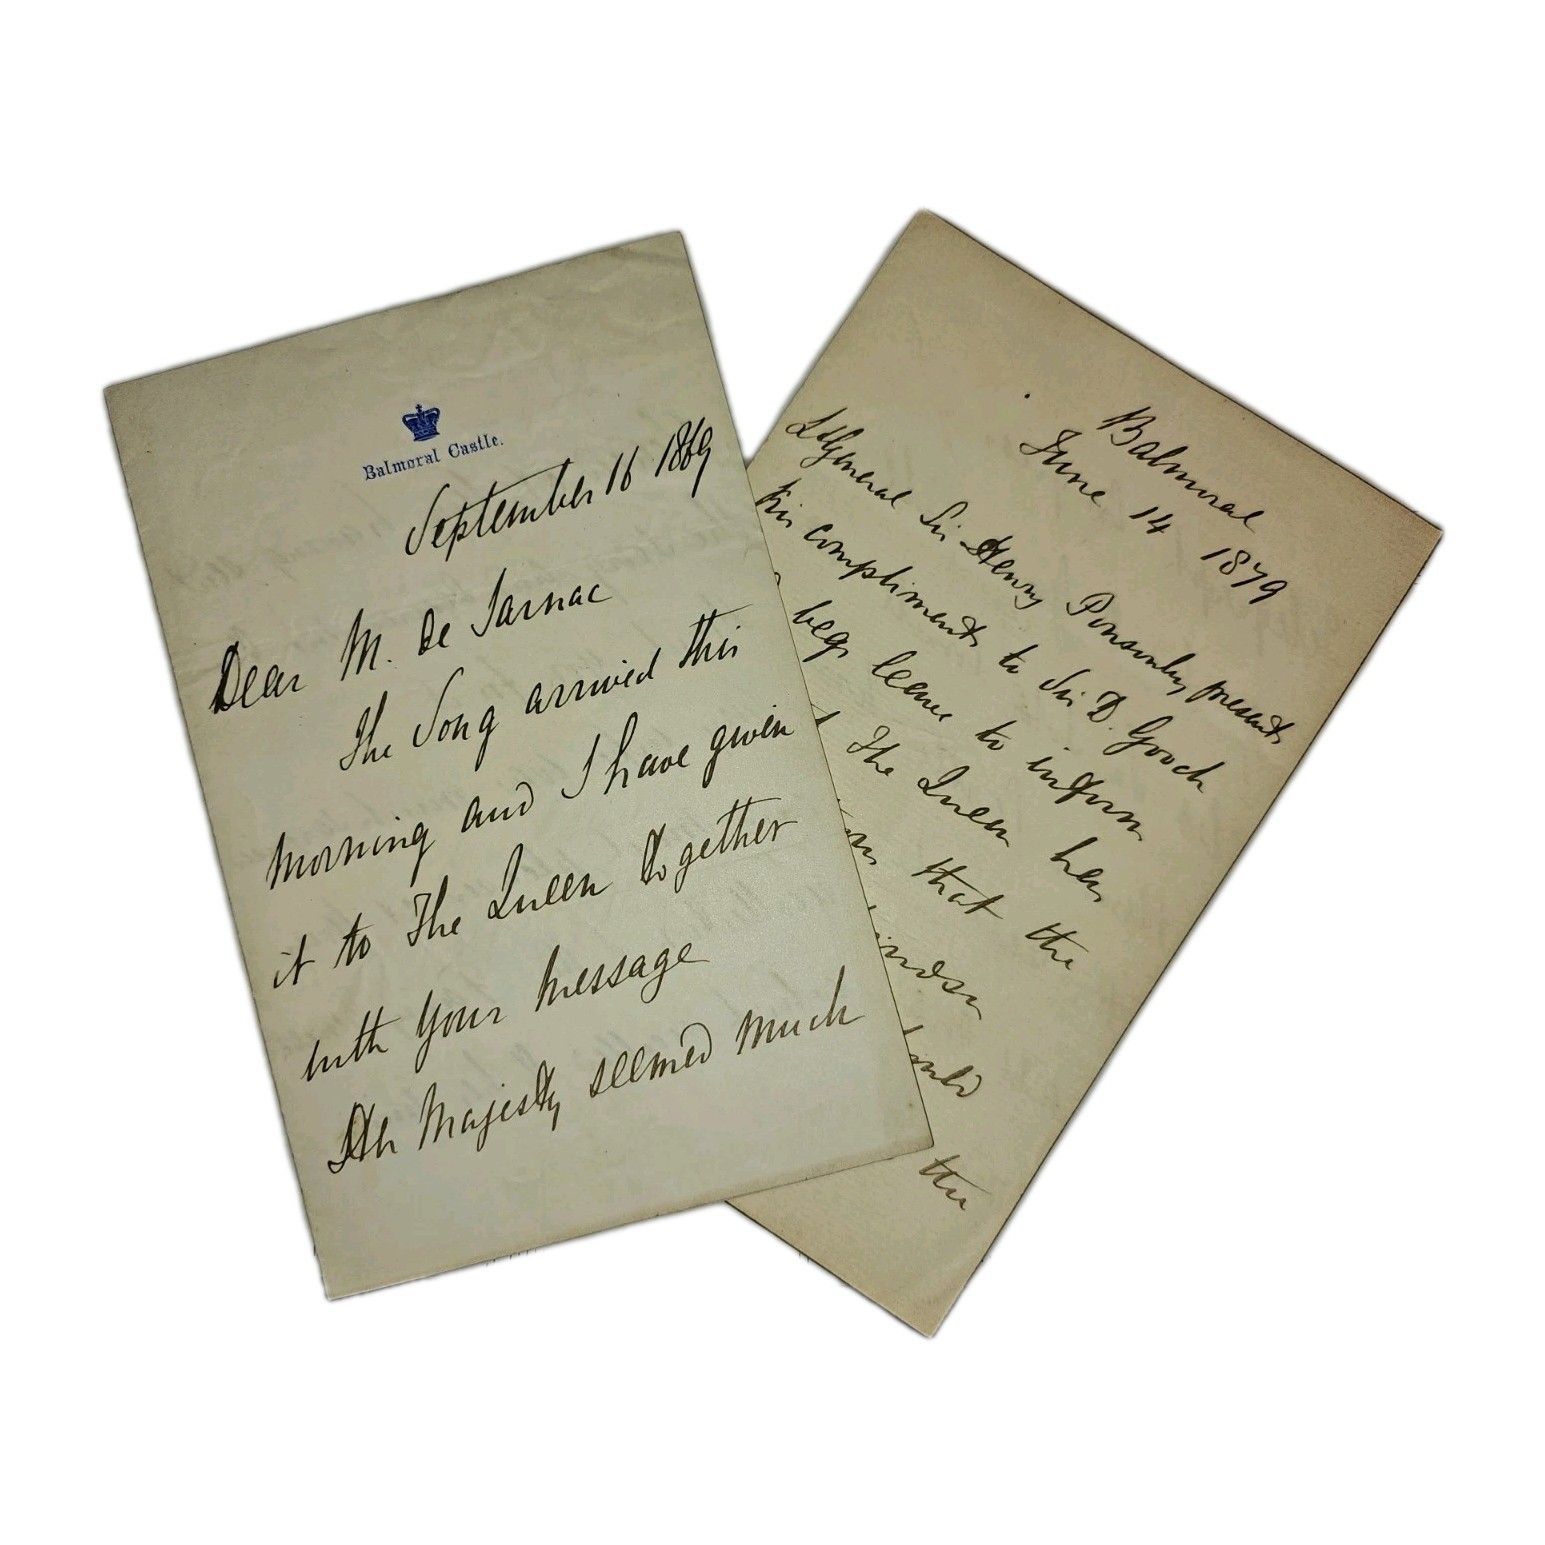 Balmoral Castle.
September 16 1869
Dear M. de Jarnac
The Song arrived this
morning and I have given
it to The Queen together
with your message
Her Majesty seemed much
Balmoral
June 14 1879
Lt General Sir Henry Ponsonby presents
his compliments to Sir D. Gooch
begs leave to inform
The Queen has
that the
the